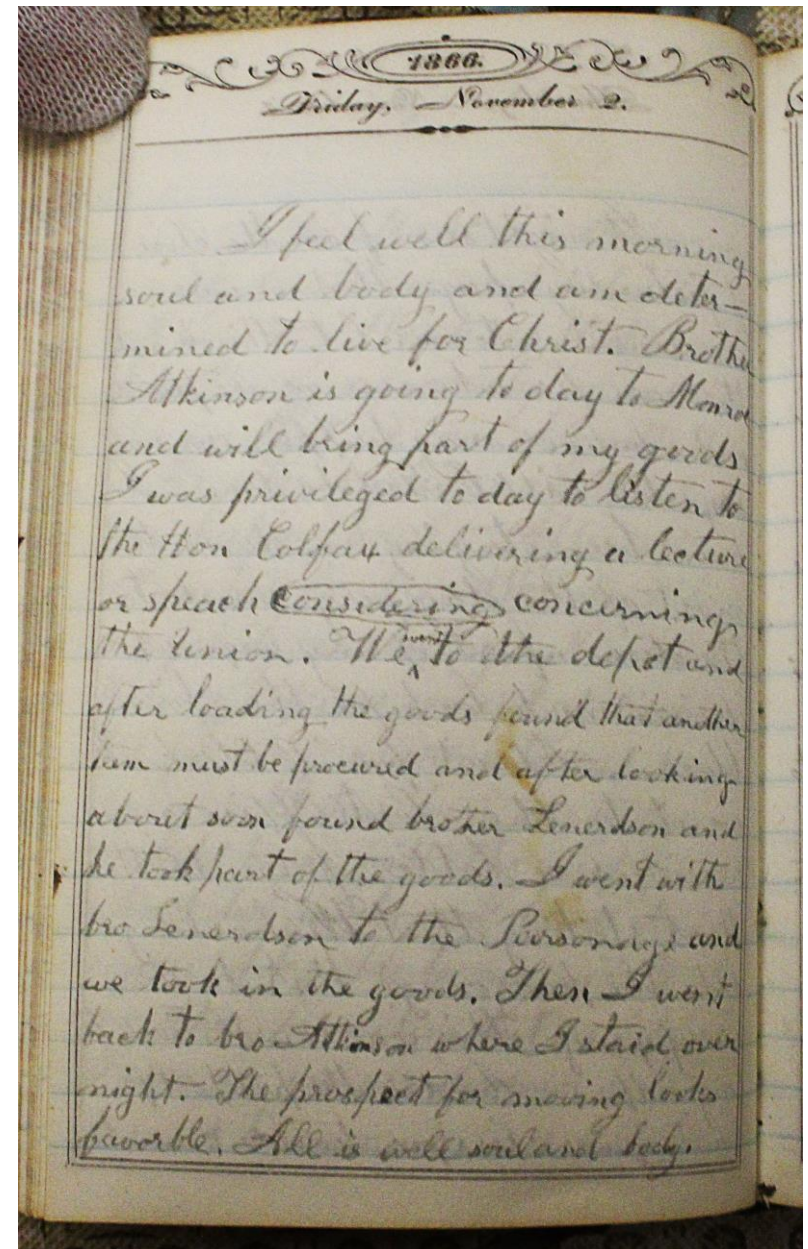 1866.
Friday, November 2.
I feel well this morning
soul and body and am deter-
mined to live for Christ. Brother
Atkinson is going to day to Monroe
and will bring part of my goods
I was privileged to day to listen to
the Hon Colfax delivering a lecture
or speach considering concerning
the Union. We went to the depot and
after loading the goods found that another
must be procured and after looking
about soon found brother Lenerdson and
he took part of the goods. I went with
bro Lenerdson to the Parsonage and
we took in the goods. Then I went
back to bro Atkinson where I staid over
night. The prospect for moving looks
favorble. All is well soul and body.